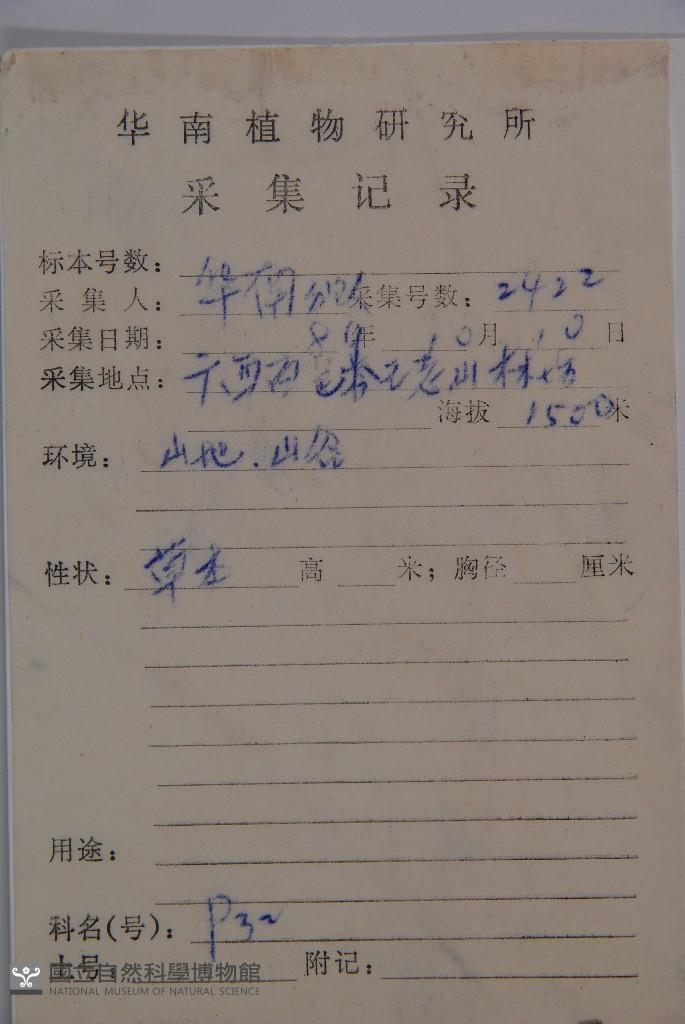 华南植物研究所
采集记录
标本号数：
采集人： 华南 采集号数： 2422
采集日期： 年 10月 10日
采集地点： 广西 老山林场
海拔 1500米
环境： 山地、山谷
性状： 草本 高 米；胸径 厘米
用途：
科名(号)： P32
土号： 附记：
國立自然科學博物館
NATIONAL MUSEUM OF NATURAL SCIENCE